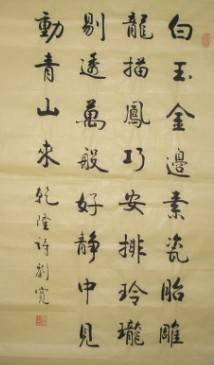 白玉金邊素瓷胎雕
龍描鳳巧安排玲瓏
剔透萬般好靜中見
動青山來 乾隆詩劉寬